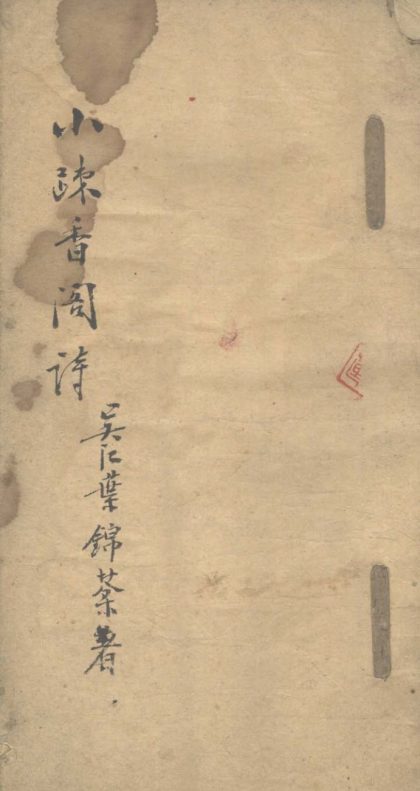 小疎香閣詩
吴江葉錦棻著